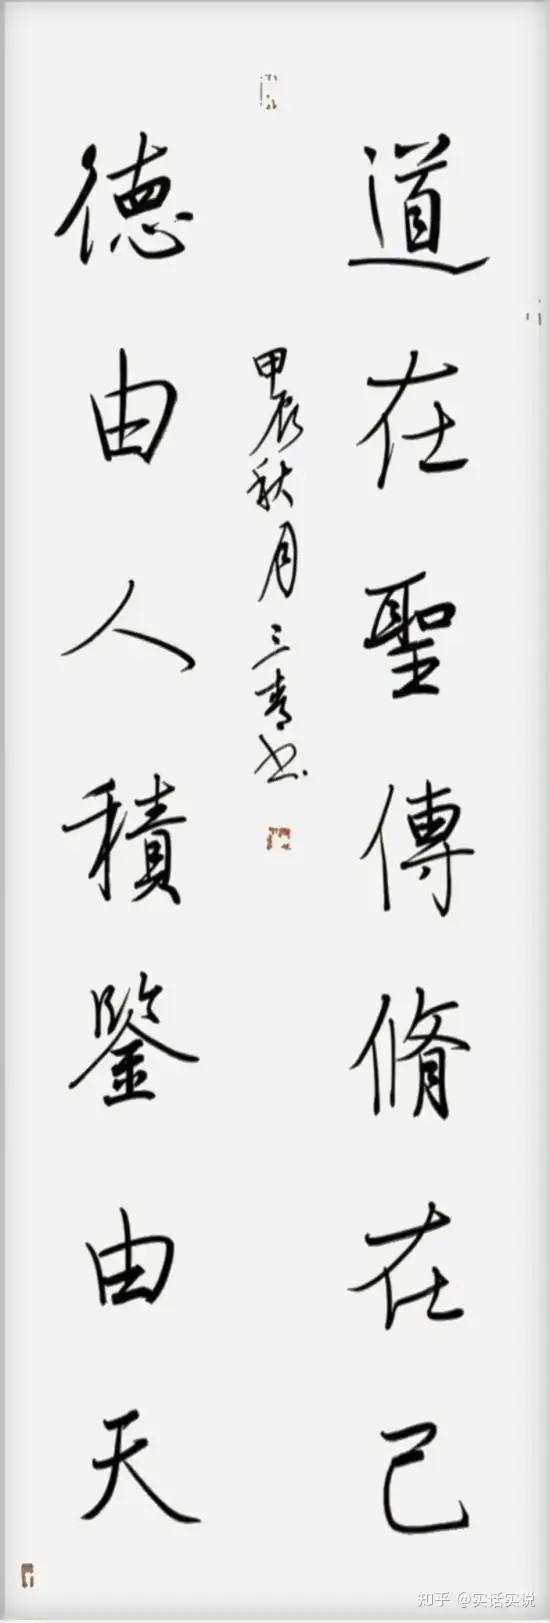 道在聖傳脩在己
德由人積鑒由天
甲辰秋月三青书
知乎 @实话实说